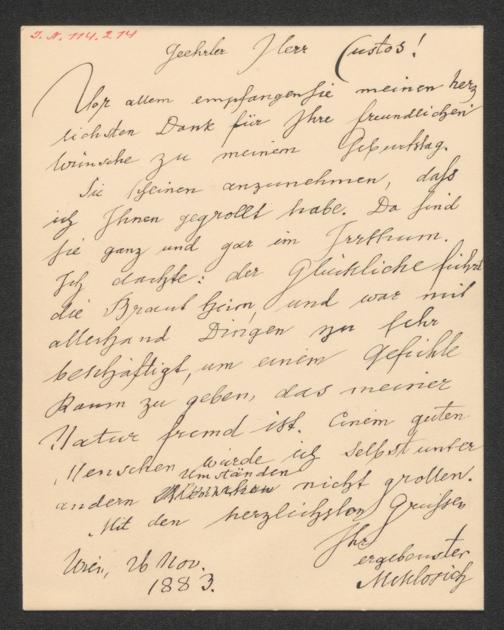 I.N. 114.214
Geehrter Herr Custos!
Vor allem empfangen Sie meinen herz
lichsten Dank für Ihre freundlichen
Wünsche zu meinem Geburtstag.
Sie scheinen anzunehmen, daß
ich Ihnen gegrollt habe. Da sind
Sie ganz und gar im Irrthum.
Ich dachte: der Glückliche führt
die Braut heim, und war mit
allerhand Dingen zu sehr
beschäftigt, um einem Gefühle
Raum zu geben, das meiner
Natur fremd ist. Einem guten
Menschen würde ich selbst unter
Umständen
andern nicht grollen.
Mit den herzlichsten Grüssen
Ihr
ergebenster
Miklosich
Wien, 26 Nov.
1883.